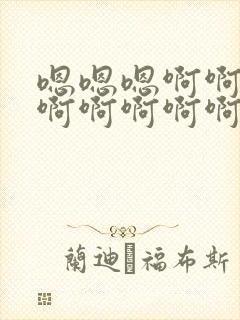 嗯嗯嗯啊啊
啊啊啊啊啊
蘭迪 福布斯